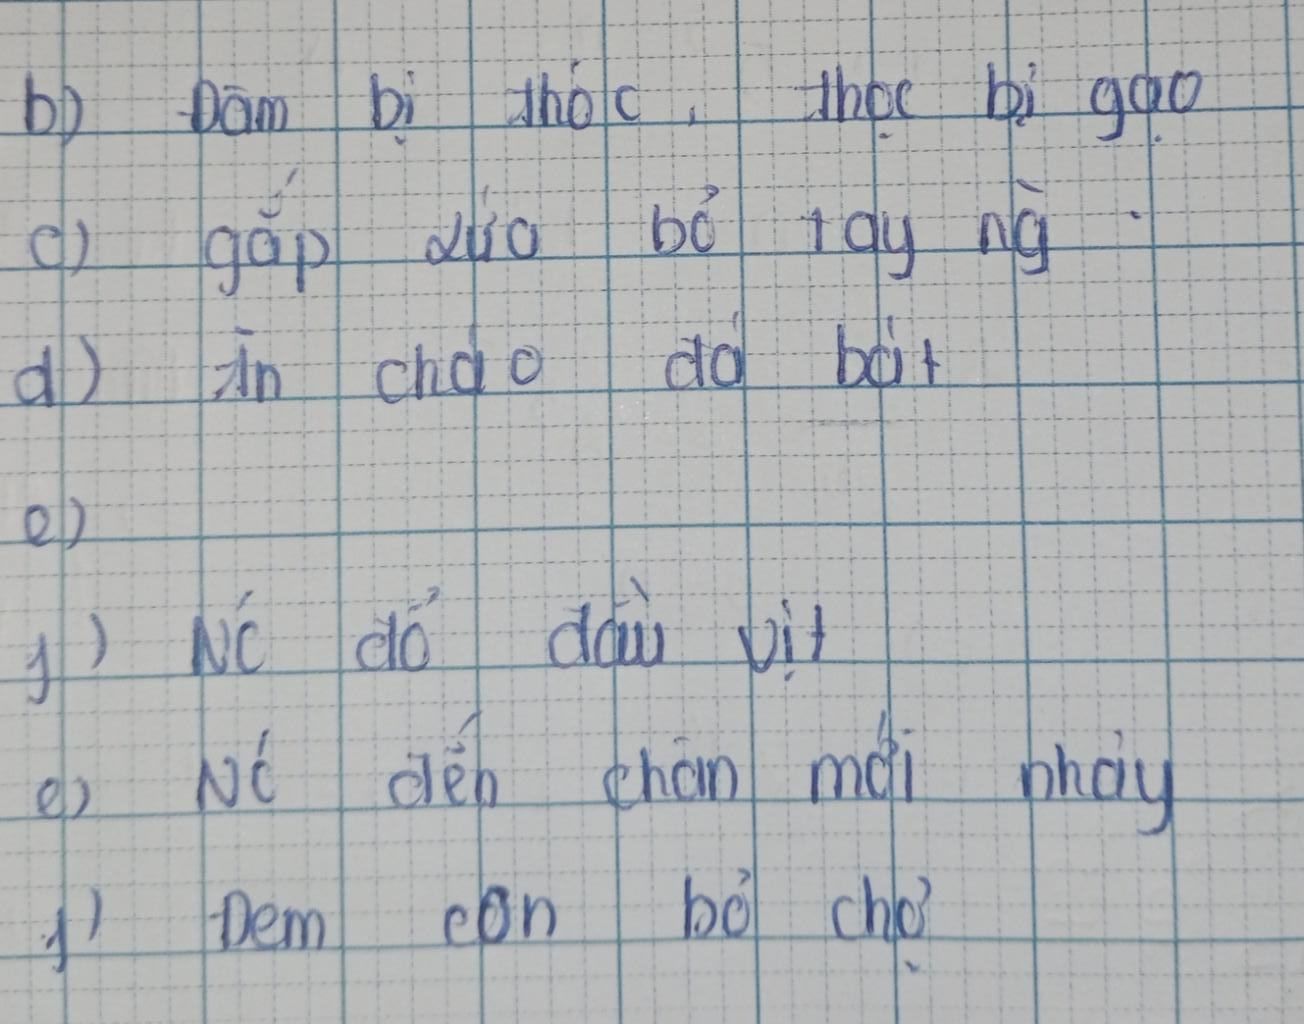 b) Đâm bị thóc, thọc bị gạo
c) gắp lửa bỏ tay ng̀ .
d) Ăn cháo đá bát
e)
f) Nc đổ đầu vịt
e) Nc đến chân mới nhảy
f) Đem con bỏ chợ